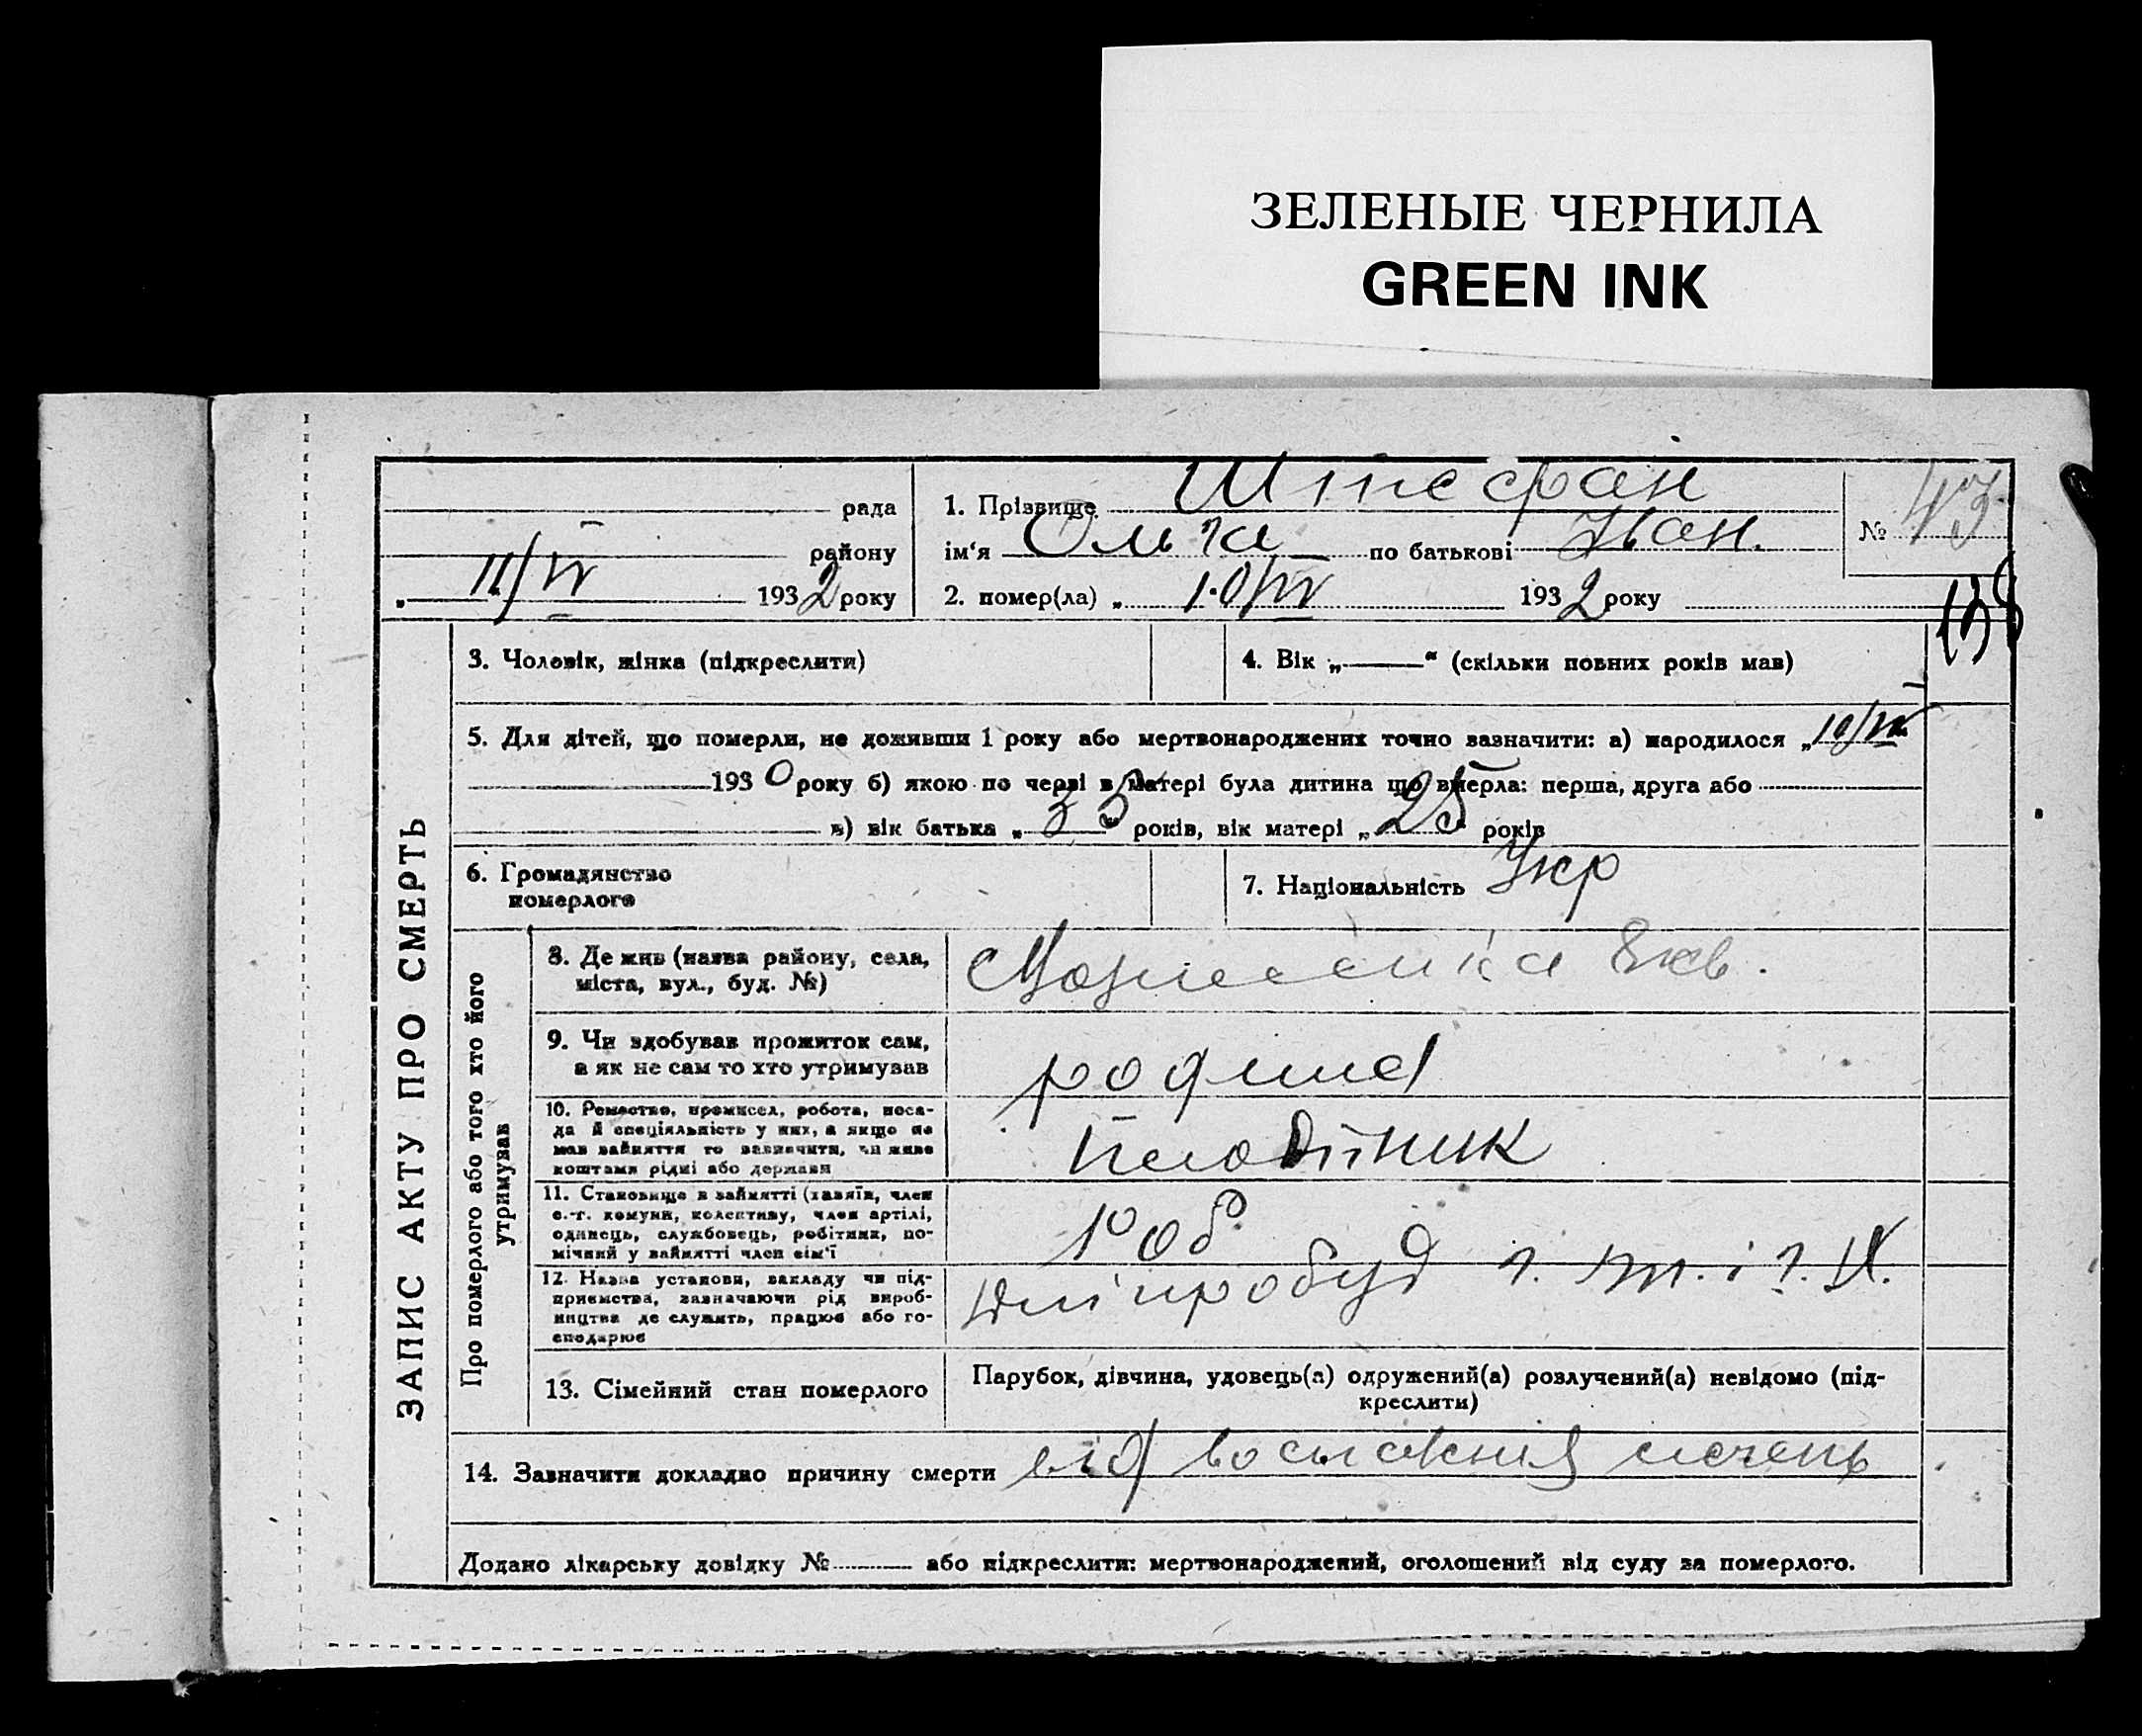 ЗЕЛЕНЫЕ ЧЕРНИЛА
GREEN INK
ЗАПИС АКТУ ПРО СМЕРТЬ
рада
району
„ 11/VI 1932 року
1. Прізвище Штефан
ім‘я Ольга по батькові Іван.
2. помер(ла) „ 10/VI 1932 року
№ 43
138
3. Чоловік, жінка (підкреслити)
4. Вік „——“ (скільки повних років мав)
5. Для дітей, що померли, не доживши 1 року або мертвонароджених точно зазначити: а) народилося „ 10/
1930 року б) якою по черзі в матері була дитина що вмерла: перша, друга або
в) вік батька „ 33 “ років, вік матері „ 28 “ років
6. Громадянство
померлого
7. Національність Укр
Про померлого або того хто його
утримував
8. Де жив (назва району, села,
міста, вул., буд. №)
8 кв.
9. Чи здобував прожиток сам,
а як не сам то хто утримував
родина
10. Ремество, промисел, робота, поса-
да й спеціяльність у них, а якщо не
мав зайняття то зазначити, чи живе
коштами рідні або держави
11. Становище в зайнятті (хазяїн, член
с.-г. комуни, колективу, член артілі,
одинець, службовець, робітник, по-
мічний у зайнятті член сім‘ї
роб
12. Назва установи, закладу чи під-
приємства, зазначаючи рід вироб-
ництва де служить, працює або го-
сподарює
Дніпробуд
13. Сімейний стан померлого
Парубок, дівчина, удовець(а) одружений(а) розлучений(а) невідомо (під-
креслити)
14. Зазначити докладно причину смерти від
Додано лікарську довідку № —— або підкреслити: мертвонароджений, оголошений від суду за померлого.